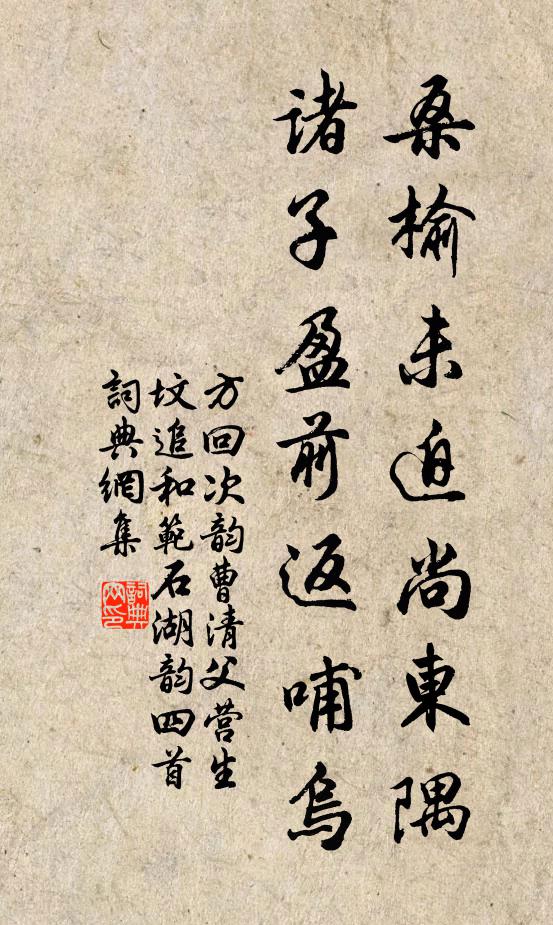 桑榆未迫尚東隅
諸子盈前返哺烏
方回次韵曹清父营生
坟追和範石湖韵四首
詞典網集
詞典网印